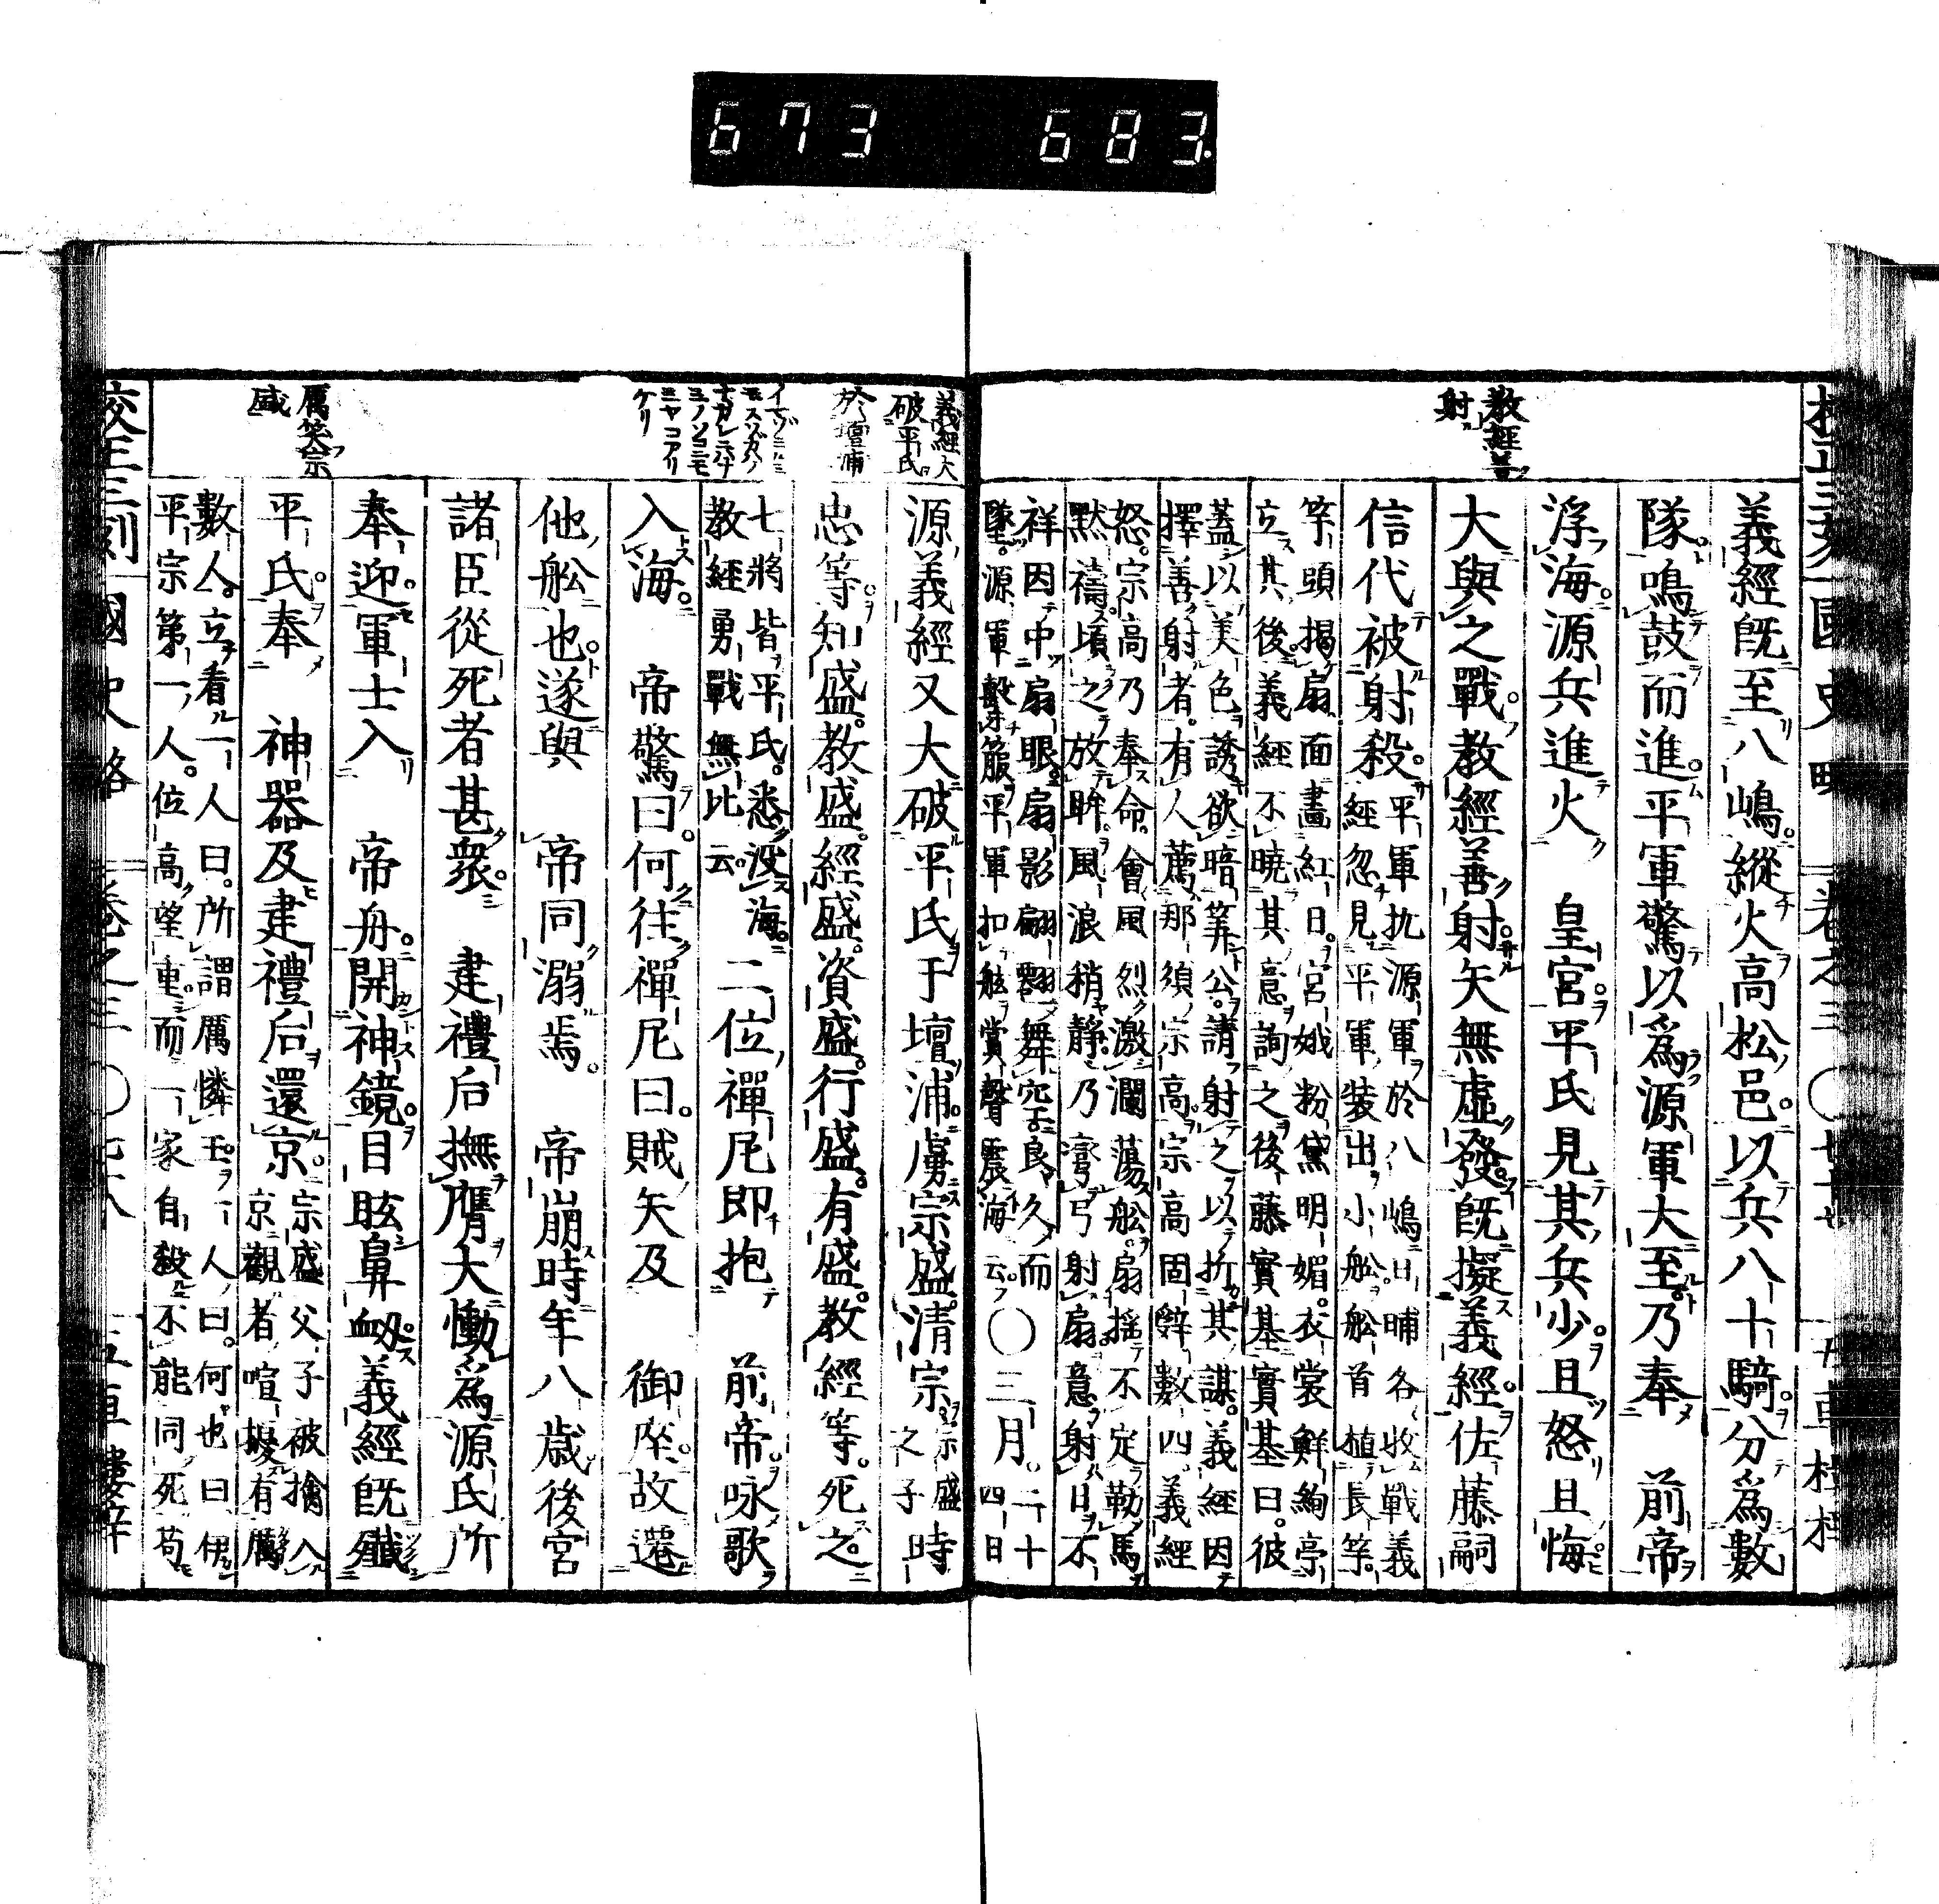 673 683.
教經善
射
義經既至八嶋縱火高松邑以兵八十騎分爲數
隊鳴鼓而進平軍驚以爲源軍大至乃奉 前帝
浮海源兵進火 皇宮平氏見其兵少且怒且悔
大與之戰教經善射矢無虛發既擬義經佐藤嗣
信代被射殺
平軍扤源軍於八嶋日晡各收戰義
經忽見平軍裝出小舩舩首植長竿
竿頭揭扇面畫紅日宮娥粉黛明媚衣裳鮮絢亭
立其後義經不曉其意詢之後藤實基實基曰彼
蓋以美色誘欲暗筭公請射之以折其謀義經因
擇善射者有人薦那須宗高宗高固辭數四義經
怒宗高乃奉命會風烈激瀾蕩舩扇搖不定勒馬
默禱頃之放眸風浪稍靜乃彎弓射扇意射日不
祥因中扇眼扇影翩翻舞空良久而
墜源軍擊箙平軍扣舷賞聲震海云
〇三月二十
四日
義經大
破平氏
於壇浦
源義經又大破平氏于壇浦虜宗盛清宗
宗盛
之子
時
忠等知盛教盛經盛資盛行盛有盛教經等死之
七將皆平氏悉沒海
教經勇戰無比云
二位禪尼即抱 前帝咏歌
イマゾシルミ
モスソガハノ
ナガレニハナ
ミノソコニモ
ミヤコアリ
ケリ
入海 帝驚曰何往禪尼曰賊矢及 御座故還
他舩也遂與 帝同溺焉 帝崩時年八歲後宮
諸臣從死者甚衆 建禮后撫膺大慟爲源氏所
奉迎軍士入 帝舟開神鏡目眩鼻衂義經既殱
平氏奉 神器及建禮后還京
宗盛父子被擒入
京觀者喧擾有厲
厲笑宗
盛
數人立看一人曰所謂厲憐王一人曰何也曰伊
平宗第一人位高望重而一家自殺不能同死苟
國史略 卷之三